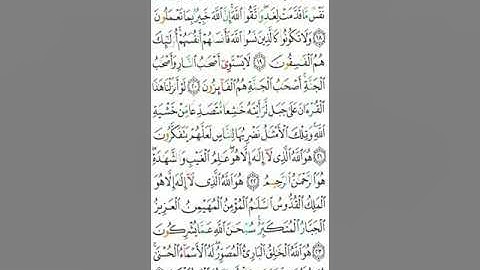 نَفْسٌ مَّا قَدَّمَتْ لِغَدٍ وَٱتَّقُوا۟ ٱللَّهَ إِنَّ ٱللَّهَ خَبِيرٌۢ بِمَا تَعْمَلُونَ
١٨ وَلَا تَكُونُوا۟ كَٱلَّذِينَ نَسُوا۟ ٱللَّهَ فَأَنسَىٰهُمْ أَنفُسَهُمْ أُو۟لَٰٓئِكَ
هُمُ ٱلْفَٰسِقُونَ ١٩ لَا يَسْتَوِىٓ أَصْحَٰبُ ٱلنَّارِ وَأَصْحَٰبُ
ٱلْجَنَّةِ أَصْحَٰبُ ٱلْجَنَّةِ هُمُ ٱلْفَآئِزُونَ ٢٠ لَوْ أَنزَلْنَا هَٰذَا
ٱلْقُرْءَانَ عَلَىٰ جَبَلٍ لَّرَأَيْتَهُۥ خَٰشِعًا مُّتَصَدِّعًا مِّنْ خَشْيَةِ
ٱللَّهِ وَتِلْكَ ٱلْأَمْثَٰلُ نَضْرِبُهَا لِلنَّاسِ لَعَلَّهُمْ يَتَفَكَّرُونَ
٢١ هُوَ ٱللَّهُ ٱلَّذِى لَآ إِلَٰهَ إِلَّا هُوَ عَٰلِمُ ٱلْغَيْبِ وَٱلشَّهَٰدَةِ
هُوَ ٱلرَّحْمَٰنُ ٱلرَّحِيمُ ٢٢ هُوَ ٱللَّهُ ٱلَّذِى لَآ إِلَٰهَ إِلَّا هُوَ
ٱلْمَلِكُ ٱلْقُدُّوسُ ٱلسَّلَٰمُ ٱلْمُؤْمِنُ ٱلْمُهَيْمِنُ ٱلْعَزِيزُ
ٱلْجَبَّارُ ٱلْمُتَكَبِّرُ سُبْحَٰنَ ٱللَّهِ عَمَّا يُشْرِكُونَ
٢٣ هُوَ ٱللَّهُ ٱلْخَٰلِقُ ٱلْبَارِئُ ٱلْمُصَوِّرُ لَهُ ٱلْأَسْمَآءُ ٱلْحُسْنَىٰ